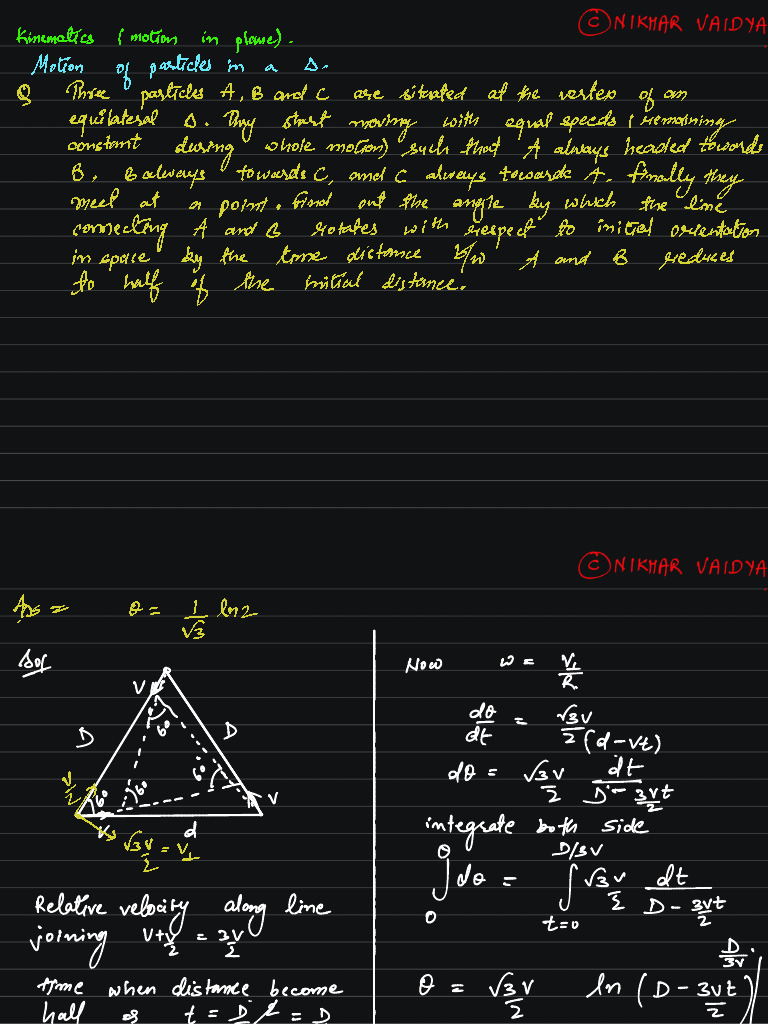 © NIKHAR VAIDYA
Kinematics (motion in plane).
Motion of particles in a Δ.
Q Three particles A, B and C are situated at the vertex of an
equilateral Δ. They start moving with equal speeds (remaining
constant during whole motion) such that A always headed towards
B, B always towards C, and C always towards A. Finally they
meet at a point. Find out the angle by which the line
connecting A and B rotates with respect to initial orientation
in space by the time distance b/w A and B reduces
to half of the initial distance.
© NIKHAR VAIDYA
Ans = θ = 1/√3 ln2
Sol
V
60
D
D
60
60
V/2
60
V
V
d
√3V/2 = V⊥
Relative velocity along line
joining V+V/2 = 3V/2
time when distance become
half
t = D
= D
Now ω = V⊥/R
dθ/dt = √3V/2(d-vt)
dθ = √3V/2 dt/(D - 3Vt/2)
integrate both side
∫₀^θ dθ = ∫_{t=0}^{D/3V} √3V/2 dt/(D - 3Vt/2)
θ = √3V/2 ln (D - 3Vt/2)|^{D/3V}